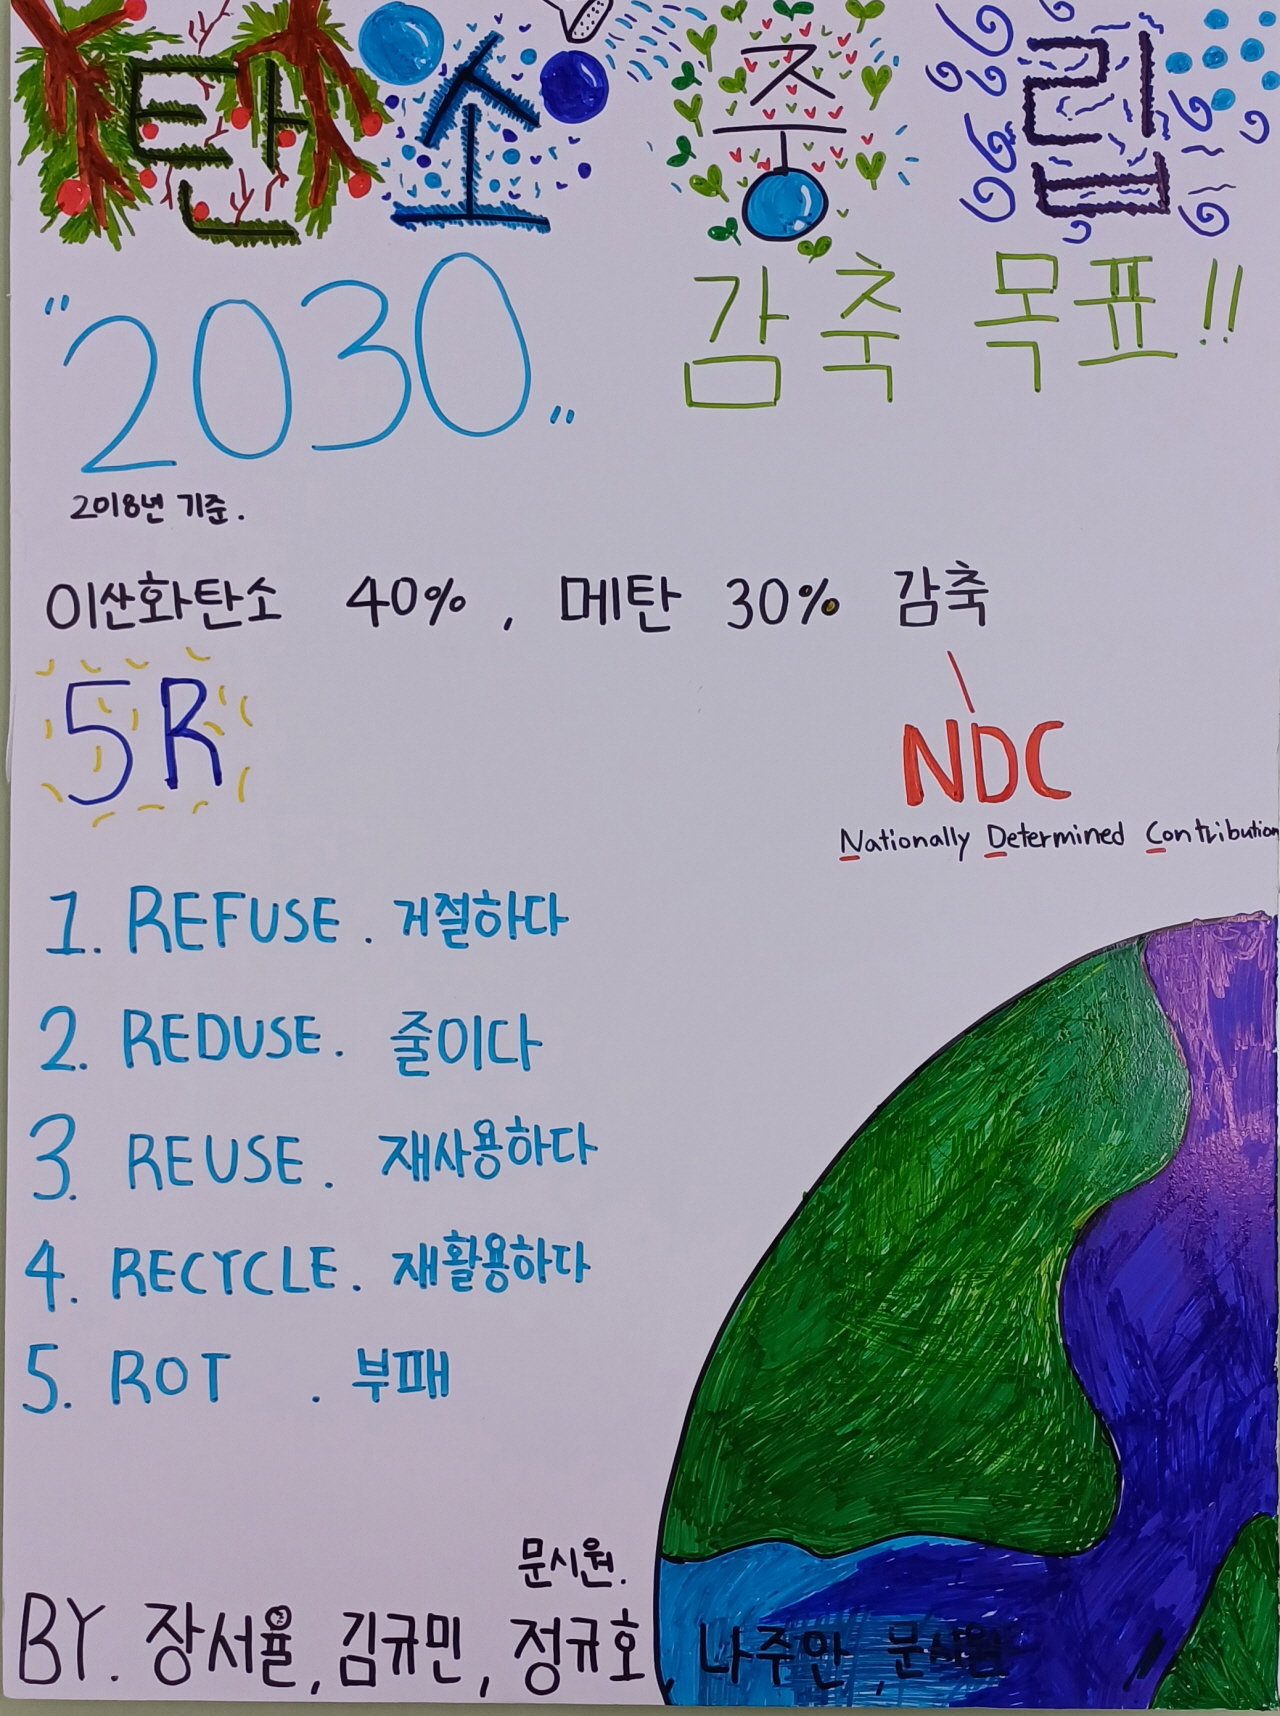 탄소 중립
"2030" 감축 목표!!
2018년 기준.
이산화탄소 40%, 메탄 30% 감축
5R
NDC
Nationally Determined Contribution
1. REFUSE. 거절하다
2. REDUSE. 줄이다
3. REUSE. 재사용하다
4. RECYCLE. 재활용하다
5. ROT . 부패
문시원.
BY. 장서율, 김규민, 정규호, 나주안, 문시원